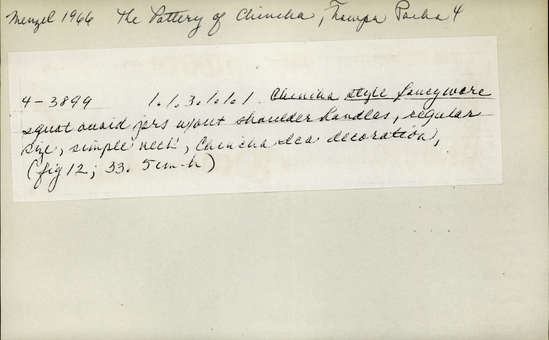 Menzel 1966 The Pottery of Chincha, Ñawpa Pacha 4
4-3899 1.1.3.1.1.1 Chincha style fancyware
squat ovoid jars w/out shoulder handles, regular
size, simple neck, Chincha Ica decoration,
(fig 12; 33.5cm-h)